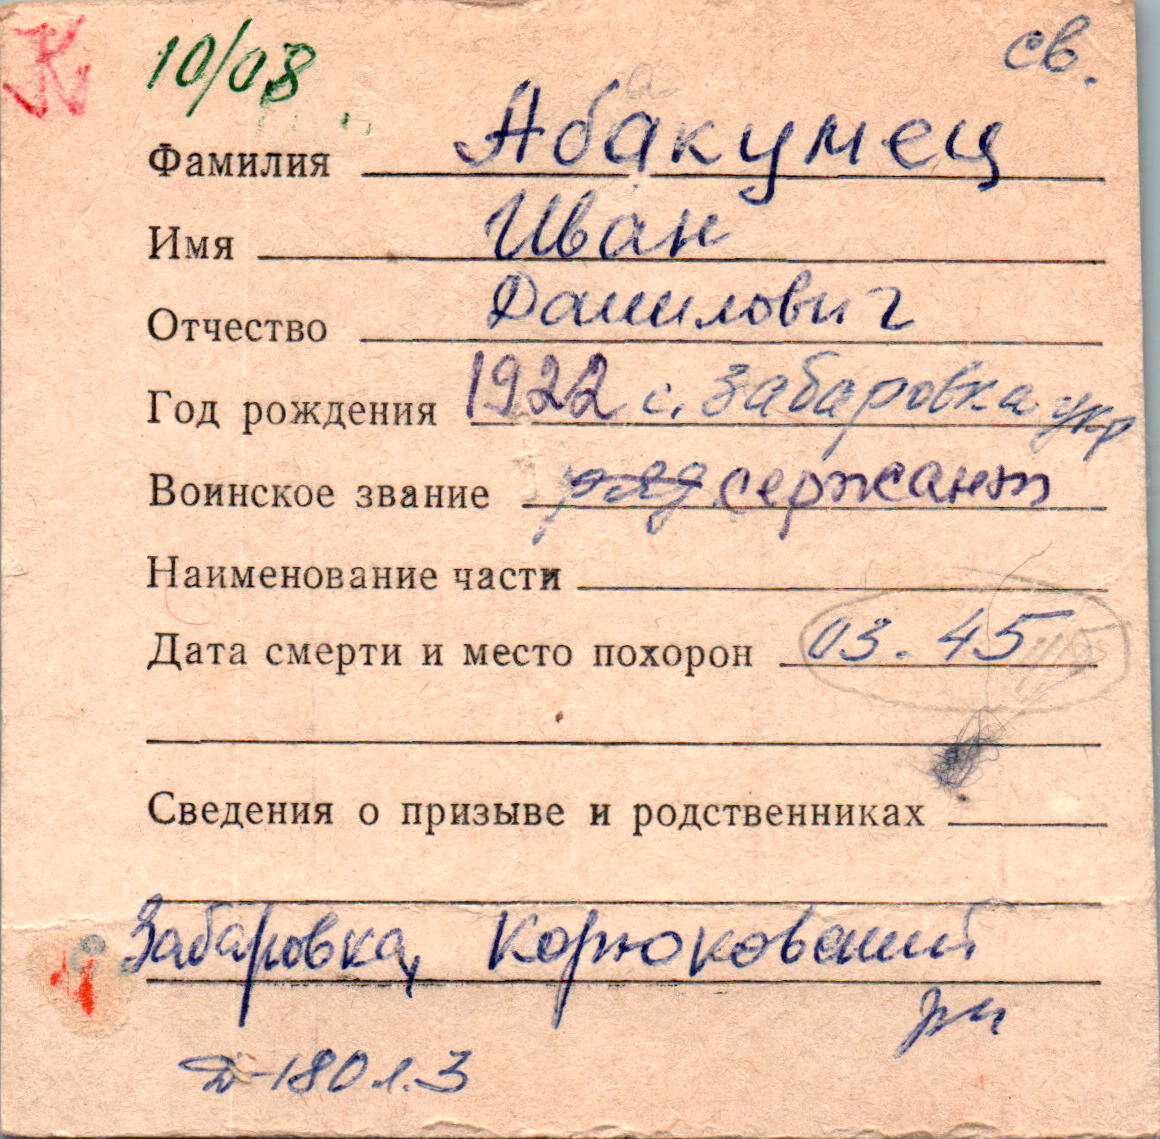 К 10/08 св.
Фамилия Абакумец
Имя Иван
Отчество Данилович
Год рождения 1922 с. Забаровка укр
Воинское звание ряд сержант
Наименование части
Дата смерти и место похорон 03.45
Сведения о призыве и родственниках
Забаровка, Корюковский
рн
Д-180 л.3